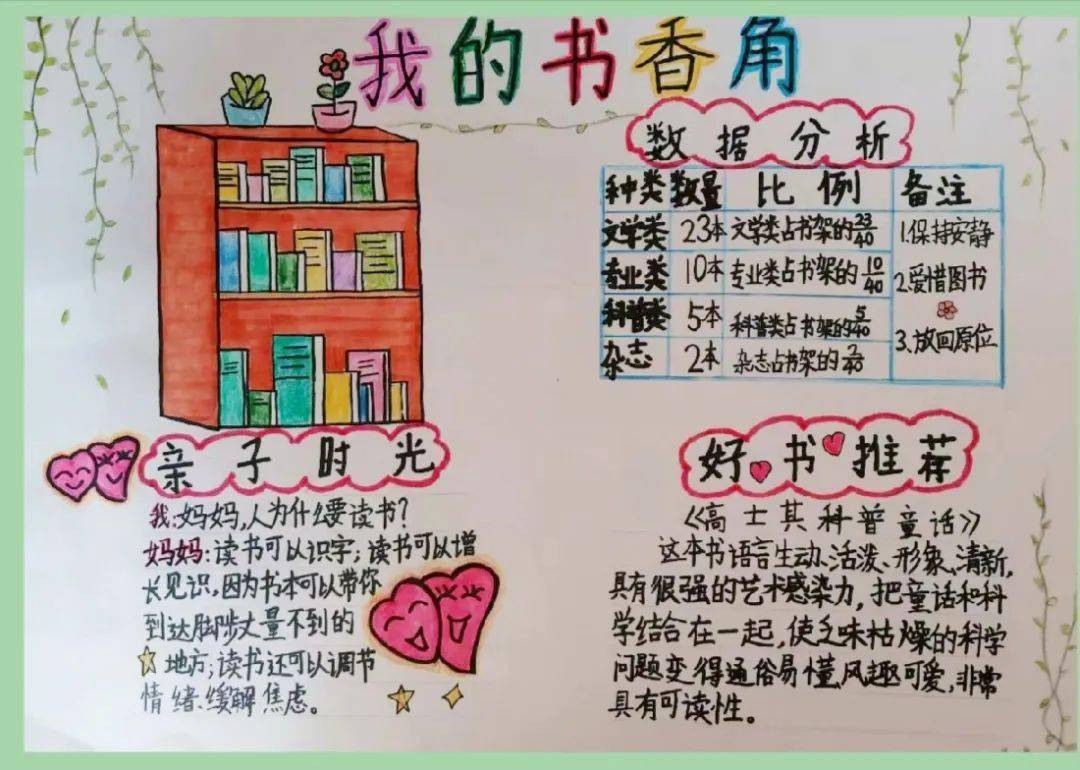 我的书香角
数据分析
种类 数量 比例 备注
文学类 23本 文学类占书架的23/40 1.保持安静
专业类 10本 专业类占书架的10/40 2.爱惜图书
科普类 5本 科普类占书架的5/40
3.放回原位
杂志 2本 杂志占书架的2/40
亲子时光
我:妈妈,人为什么要读书?
妈妈:读书可以识字;读书可以增
长见识,因为书本可以带你
到达脚步丈量不到的
地方;读书还可以调节
情绪、缓解焦虑。
好书推荐
《高士其科普童话》
这本书语言生动、活泼、形象、清新,
具有很强的艺术感染力,把童话和科
学结合在一起,使乏味枯燥的科学
问题变得通俗易懂,风趣可爱,非常
具有可读性。